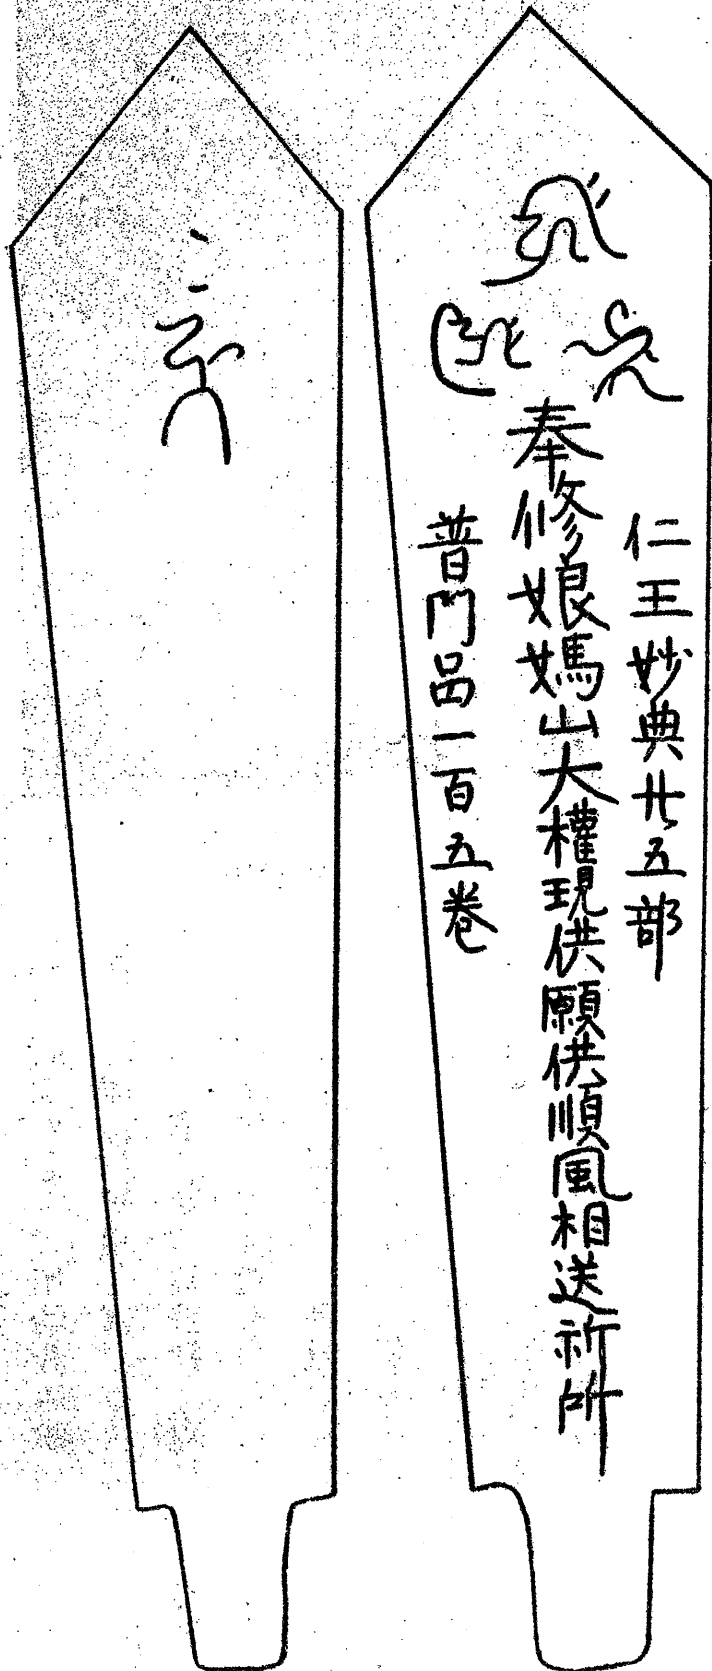 仁王妙典廿五部
奉修娘媽山大權現供願供順風相送祈所
普門品一百五巻